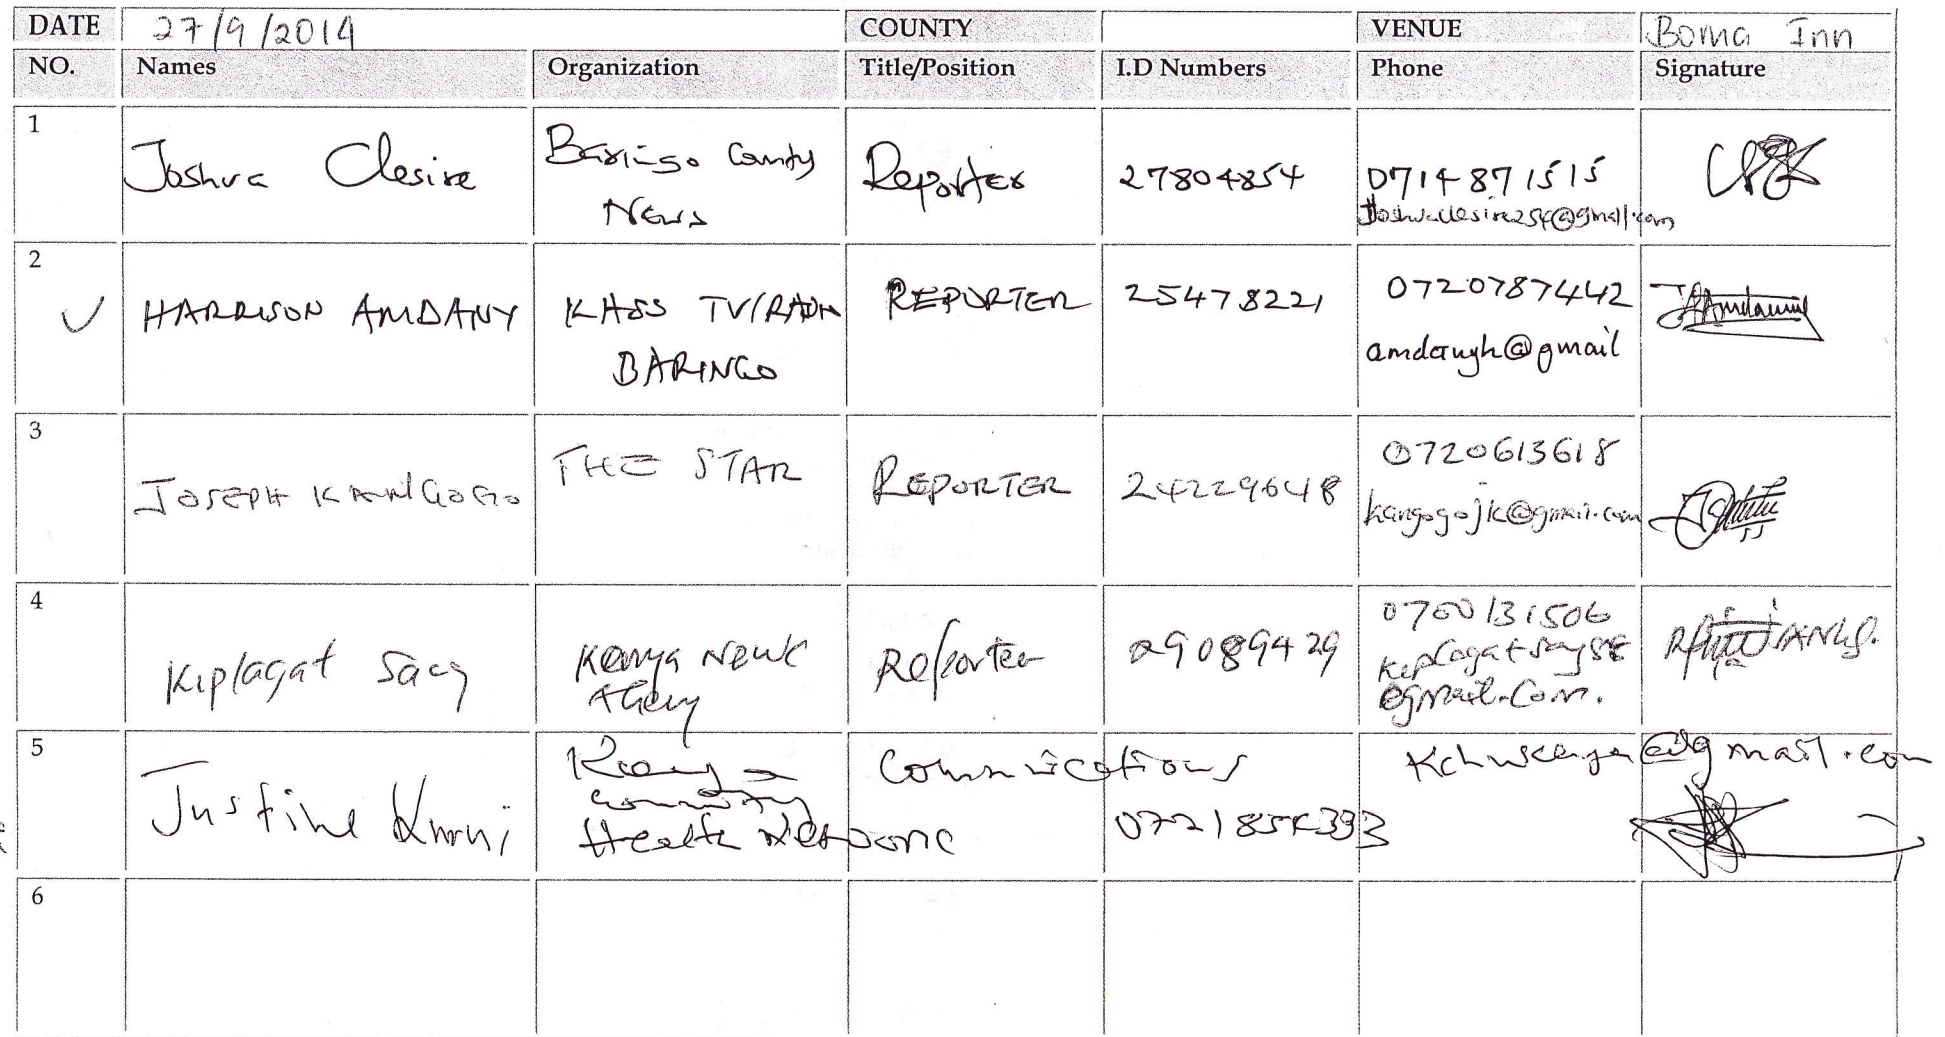 DATE 27/9/2014 COUNTY VENUE Boma Inn
NO. Names Organization Title/Position I.D Numbers Phone Signature
1 Joshua Clesire Baringo County News Reporter 27804854 0714871515
Joshuaclesire254@gmail.com
2 HARRISON AMDANY KASS TV/RADIO BARINGO REPORTER 25478221 0720787442
amdanyh@gmail
3 JOSEPH KANGOGO THE STAR REPORTER 24229648 0720613618
kangogojk@gmail.com
4 Kiplagat Sacy Kenya News Reporter 29089429 0700131506
@gmail.com.
5 Justine Kenya Community Health Network Communications
@gmail.com
6